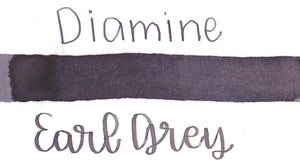 Diamine
Earl Grey